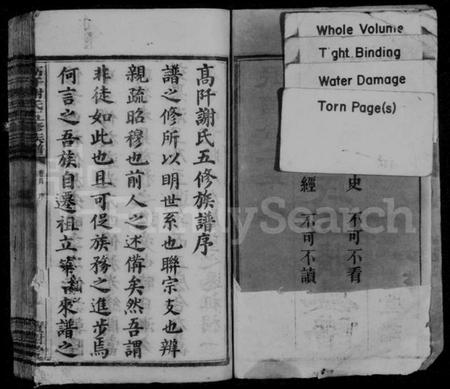 Whole Volume
Tight Binding
Water Damage
Torn Page(s)
史 不可不看
經 不可不讀
高阡謝氏五修族譜序
譜之修所以明世系也聯宗支也辨
親疏昭穆也前人之述備矣然吾謂
非徒如此也且可促族務之進步焉
何言之吾族自遷祖立籍以來譜之
FamilySearch